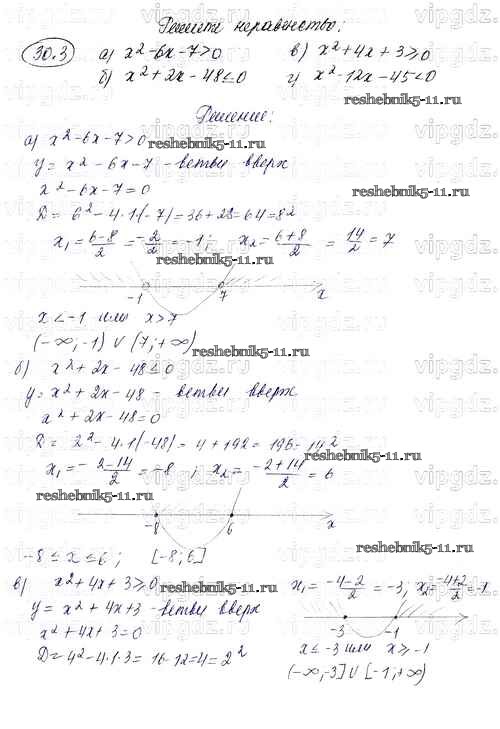 Решите неравенство:
30.3 а) x²-6x-7>0 в) x²+4x+3⩾0
б) x²+2x-48⩽0 г) x²-12x-45<0
reshebnik5-11.ru
Решение:
а) x²-6x-7>0
reshebnik5-11.ru
y = x²-6x-7 - ветви вверх
x²-6x-7=0
reshebnik5-11.ru
D = 6²-4·1·(-7)=36+28=64=8²
x₁=(6-8)/2=-2/2=-1; x₂=(6+8)/2 = 14/2=7
reshebnik5-11.ru
-1 7 x
x<-1 или x>7
(-∞;-1) ∪ (7;+∞)
reshebnik5-11.ru
б) x²+2x-48⩽0
y= x²+2x-48 - ветви вверх
x²+2x-48=0
D= 2²-4·1·(-48)=4+192=196=14²
reshebnik5-11.ru
x₁=-(2-14)/2=-8 ; x₂=(-2+14)/2=6
reshebnik5-11.ru
-8 6 x
reshebnik5-11.ru
-8⩽x⩽6; [-8;6]
в) x²+4x+3⩾0
reshebnik5-11.ru
y= x²+4x+3 - ветви вверх
x²+4x+3=0
D=4²-4·1·3=16-12=4=2²
x₁=(-4-2)/2=-3; x₂=(-4+2)/2=-1
-3 -1 x
x⩽-3 или x⩾-1
(-∞;-3] ∪ [-1;+∞)
vipgdz.ru